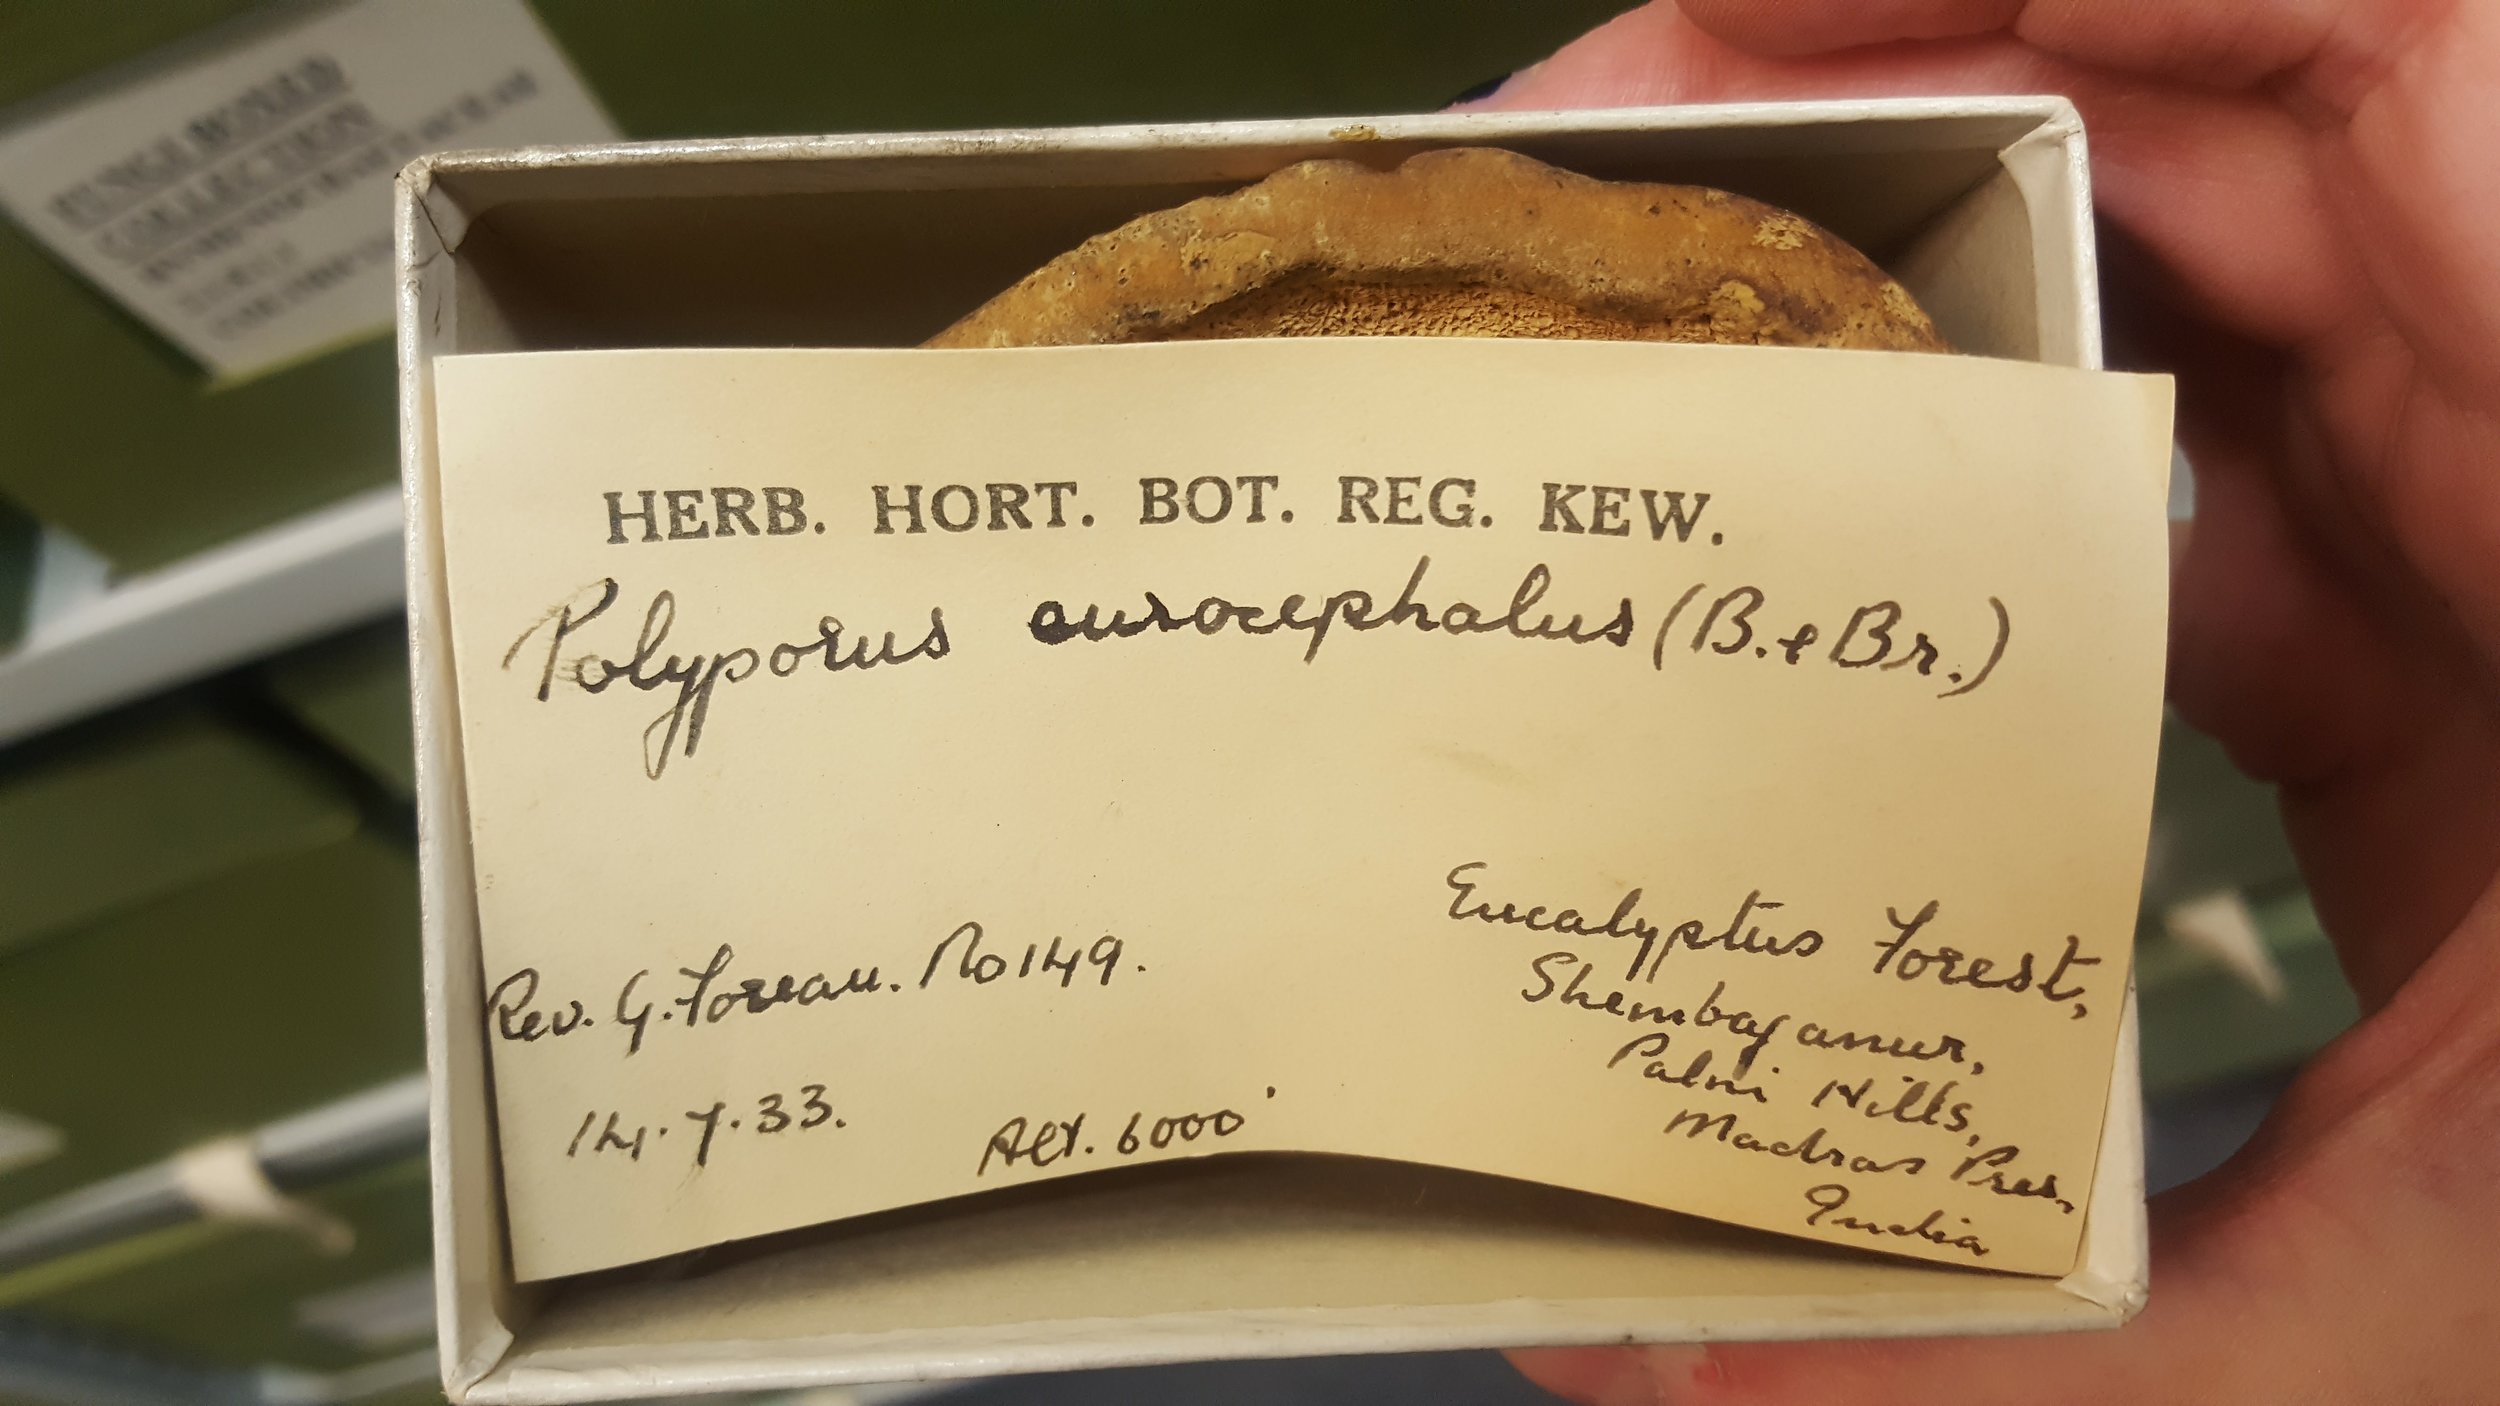 FUNGI BOXED
COLLECTION
HERB. HORT. BOT. REG. KEW.
Polyporus eurocephalus (B. & Br.)
Rev. G. Foreau. No 149.
14.7.33.
Alt. 6000'
Eucalyptus Forest,
Shembaganur,
Palni Hills,
Madras Pres,
India